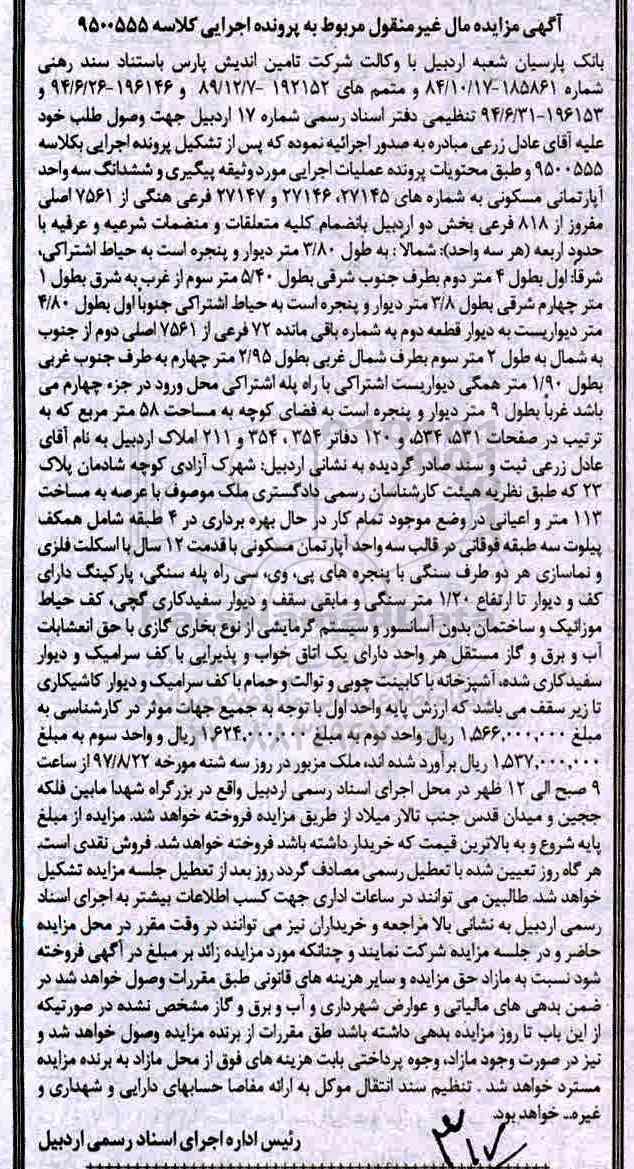 آگهی مزایده مال غیرمنقول مربوط به پرونده اجرایی کلاسه ۹۵۰۰۵۵۵
بانک پارسیان شعبه اردبیل با وکالت شرکت تامین اندیش پارس باستناد سند رهنی
شماره ۱۸۵۸۶۱-۸۴/۱۰/۱۷ و متمم های ۱۹۲۱۵۲ -۸۹/۱۲/۷ و ۱۹۶۱۴۶-۹۴/۶/۲۶ و
۱۹۶۱۵۳-۹۴/۶/۳۱ تنظیمی دفتر اسناد رسمی شماره ۱۷ اردبیل جهت وصول طلب خود
علیه آقای عادل زرعی مبادره به صدور اجرائیه نموده که پس از تشکیل پرونده اجرایی بکلاسه
۹۵۰۰۵۵۵ و طبق محتویات پرونده عملیات اجرایی مورد وثیقه پیگیری و ششدانگ سه واحد
آپارتمانی مسکونی به شماره های ۲۷۱۴۵، ۲۷۱۴۶ و ۲۷۱۴۷ فرعی هنگی از ۷۵۶۱ اصلی
مفروز از ۸۱۸ فرعی بخش دو اردبیل بانضمام کلیه متعلقات و منضمات شرعیه و عرفیه با
حدود اربعه (هر سه واحد): شمالاً : به طول ۳/۸۰ متر دیوار و پنجره است به حیاط اشتراکی،
شرقاً: اول بطول ۴ متر دوم بطرف جنوب شرقی بطول ۵/۴۰ متر سوم از غرب به شرق بطول ۱
متر چهارم شرقی بطول ۳/۸ متر دیوار و پنجره است به حیاط اشتراکی جنوباً اول بطول ۴/۸۰
متر دیواریست به دیوار قطعه دوم به شماره باقی مانده ۷۲ فرعی از ۷۵۶۱ اصلی دوم از جنوب
به شمال به طول ۲ متر سوم بطرف شمال غربی بطول ۲/۹۵ متر چهارم به طرف جنوب غربی
بطول ۱/۹۰ متر همگی دیواریست اشتراکی با راه پله اشتراکی محل ورود در جزء چهارم می
باشد غرباً بطول ۹ متر دیوار و پنجره است به فضای کوچه به مساحت ۵۸ متر مربع که به
ترتیب در صفحات ۵۳۱، ۵۳۴، و ۱۲۰ دفاتر ۳۵۴ ، ۳۵۴ و ۲۱۱ املاک اردبیل به نام آقای
عادل زرعی ثبت و سند صادر گردیده به نشانی اردبیل: شهرک آزادی کوچه شادمان پلاک
۲۳ که طبق نظریه هیئت کارشناسان رسمی دادگستری ملک موصوف با عرصه به مساحت
۱۱۳ متر و اعیانی در وضع موجود تمام کار در حال بهره برداری در ۴ طبقه شامل همکف
پیلوت سه طبقه فوقانی در قالب سه واحد آپارتمان مسکونی با قدمت ۱۲ سال با اسکلت فلزی
و نماسازی هر دو طرف سنگی با پنجره های پی، وی، سی راه پله سنگی، پارکینگ دارای
کف و دیوار تا ارتفاع ۱/۲۰ متر سنگی و مابقی سقف و دیوار سفیدکاری گچی، کف حیاط
موزائیک و ساختمان بدون آسانسور و سیستم گرمایشی از نوع بخاری گازی با حق انعشابات
آب و برق و گاز مستقل هر واحد دارای یک اتاق خواب و پذیرایی با کف سرامیک و دیوار
سفیدکاری شده، آشپزخانه با کابینت چوبی و توالت و حمام با کف سرامیک و دیوار کاشیکاری
تا زیر سقف می باشد که ارزش پایه واحد اول با توجه به جمیع جهات موثر در کارشناسی به
مبلغ ۱،۵۶۶،۰۰۰،۰۰۰ ریال واحد دوم به مبلغ ۱،۶۲۴،۰۰۰،۰۰۰ ریال و واحد سوم به مبلغ
۱،۵۳۷،۰۰۰،۰۰۰ ریال برآورد شده اند، ملک مزبور در روز سه شنبه مورخه ۹۷/۸/۲۲ از ساعت
۹ صبح الی ۱۲ ظهر در محل اجرای اسناد رسمی اردبیل واقع در بزرگراه شهدا مابین فلکه
ججین و میدان قدس جنب تالار میلاد از طریق مزایده فروخته خواهد شد. مزایده از مبلغ
پایه شروع و به بالاترین قیمت که خریدار داشته باشد فروخته خواهد شد. فروش نقدی است.
هر گاه روز تعیین شده با تعطیل رسمی مصادف گردد روز بعد از تعطیل جلسه مزایده تشکیل
خواهد شد. طالبین می توانند در ساعات اداری جهت کسب اطلاعات بیشتر به اجرای اسناد
رسمی اردبیل به نشانی بالا مراجعه و خریداران نیز می توانند در وقت مقرر در محل مزایده
حاضر و در جلسه مزایده شرکت نمایند و چنانکه مورد مزایده زائد بر مبلغ در آگهی فروخته
شود نسبت به مازاد حق مزایده و سایر هزینه های قانونی طبق مقررات وصول خواهد شد در
ضمن بدهی های مالیاتی و عوارض شهرداری و آب و برق و گاز مشخص نشده در صورتیکه
از این باب تا روز مزایده بدهی داشته باشد طق مقررات از برنده مزایده وصول خواهد شد و
نیز در صورت وجود مازاد، وجوه پرداختی بابت هزینه های فوق از محل مازاد به برنده مزایده
مسترد خواهد شد . تنظیم سند انتقال موکل به ارائه مفاصا حسابهای دارایی و شهداری و
غیره... خواهد بود.
رئیس اداره اجرای اسناد رسمی اردبیل